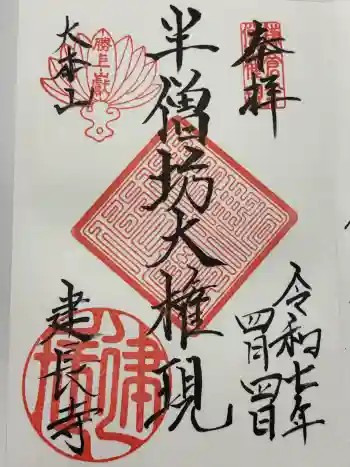 奉拝
令和七年
四月四日
半僧坊大権現
勝上嶽
大本山
建長寺